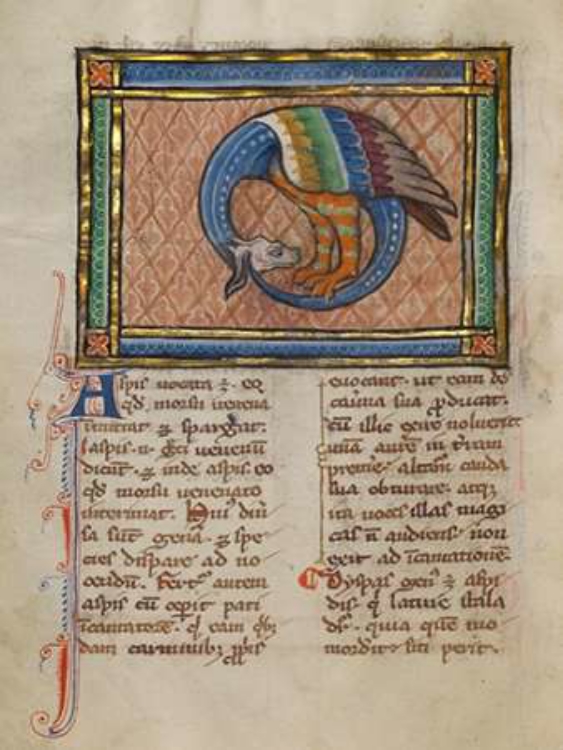 Aspis uocata ÷. eo
qd morsu uenena
inmittat ⁊ spargat.
Iaspis. n. greci uenenū
dicūt. ⁊ inde aspis. eo
qd morsu uenenato
interimat. Huiꝰ diu
sa sūt genera. ⁊ spe
cies dispares ad no
cendū. Fert᷑ autem
aspis cū cepit pati
icantatorē. q̄ eam qbꝰ
dam carminibꝫ
euocant. ut eam de
cauerna sua ꝓducat.
cū illic exire noluerit
unā aurē in t̄ram
premit. alterā cauda
sua obturare. atqꝫ
ita uoces illas magi
cas n̄ audiens. non
exit ad icantationē.
Dyspas genꝰ ÷ aspi
dis. q̄ latine situla
dr̄. quia quē mo
mordit. siti perit.